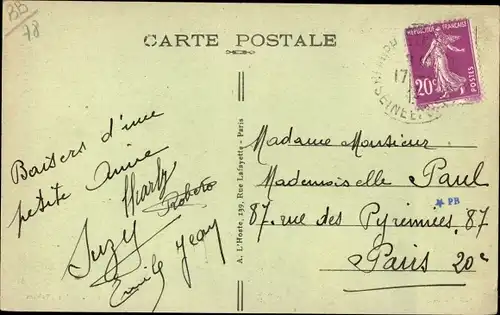 BB
78
CARTE POSTALE
RÉPUBLIQUE FRANÇAISE
20c
POSTES
17
SEINE ET
Baisers d'une
petite amie
Charly
Suzy
Jean
Emile
A. L'Hoste, 139, Rue Lafayette - Paris
Madame Monsieur
Mademoiselle Paul
87. rue des Pyrénnées. 87
PB
Paris 20e